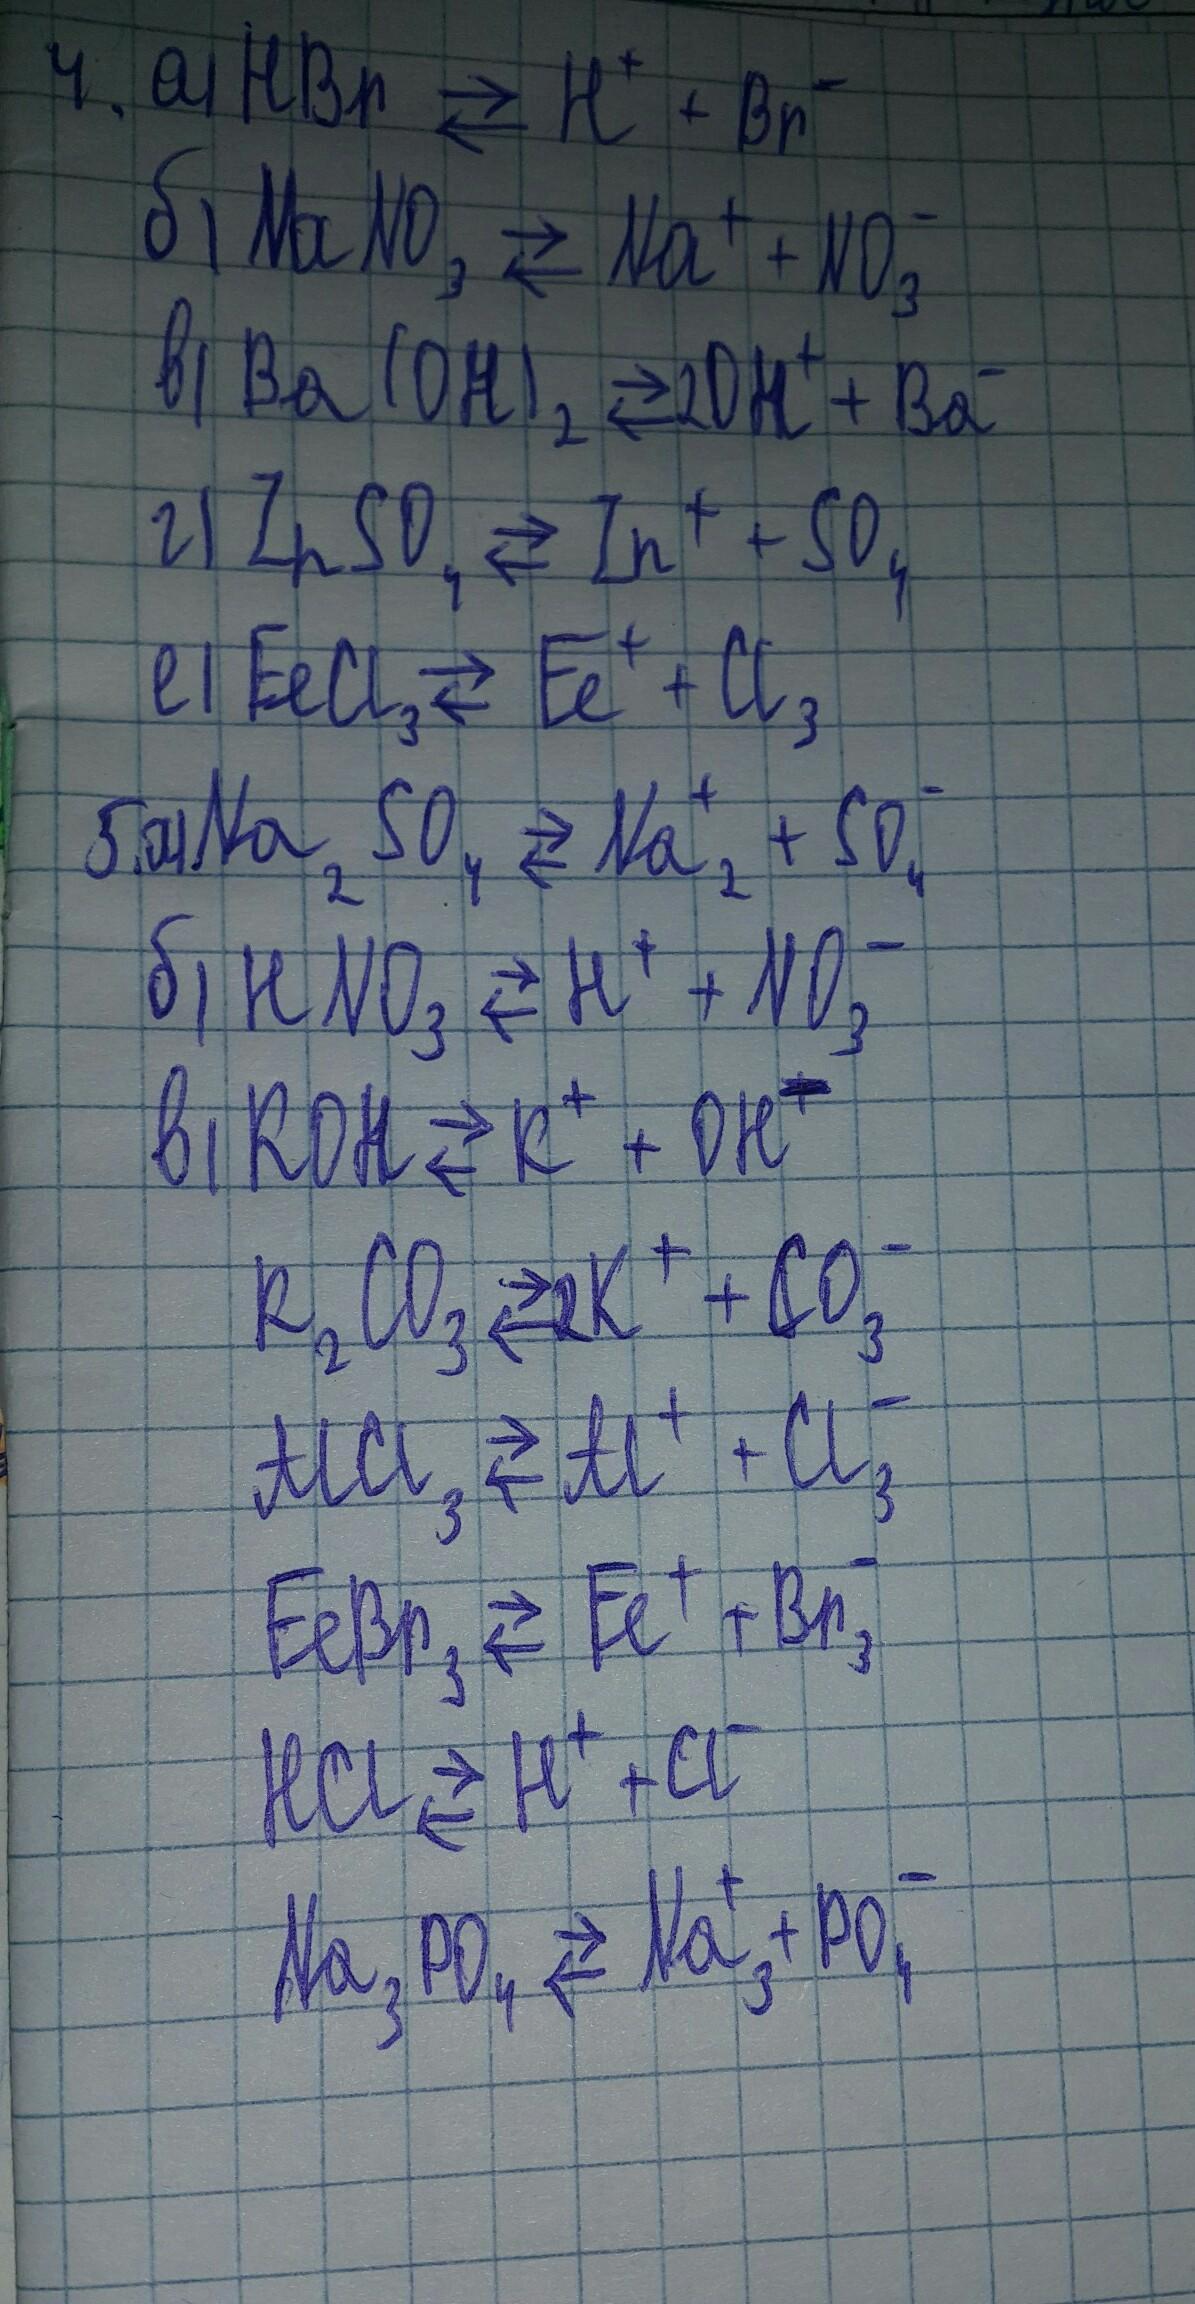 4. а) HBr ⇄ H⁺ + Br⁻
б) NaNO₃ ⇄ Na⁺ + NO₃⁻
в) Ba(OH)₂ ⇄ 2OH⁺ + Ba⁻
г) ZnSO₄ ⇄ Zn⁺ + SO₄
е) FeCl₃ ⇄ Fe⁺ + Cl₃
5. а) Na₂SO₄ ⇄ Na₂⁺ + SO₄⁻
б) HNO₃ ⇄ H⁺ + NO₃⁻
в) KOH ⇄ K⁺ + OH⁻
K₂CO₃ ⇄ 2K⁺ + CO₃⁻
AlCl₃ ⇄ Al⁺ + Cl₃⁻
FeBr₃ ⇄ Fe⁺ + Br₃⁻
HCl ⇄ H⁺ + Cl⁻
Na₃PO₄ ⇄ Na₃⁺ + PO₄⁻